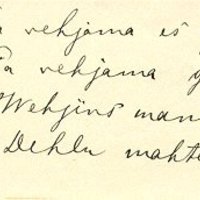 vehjama eš
vehjama
Wehjins man
Dehlu mahte